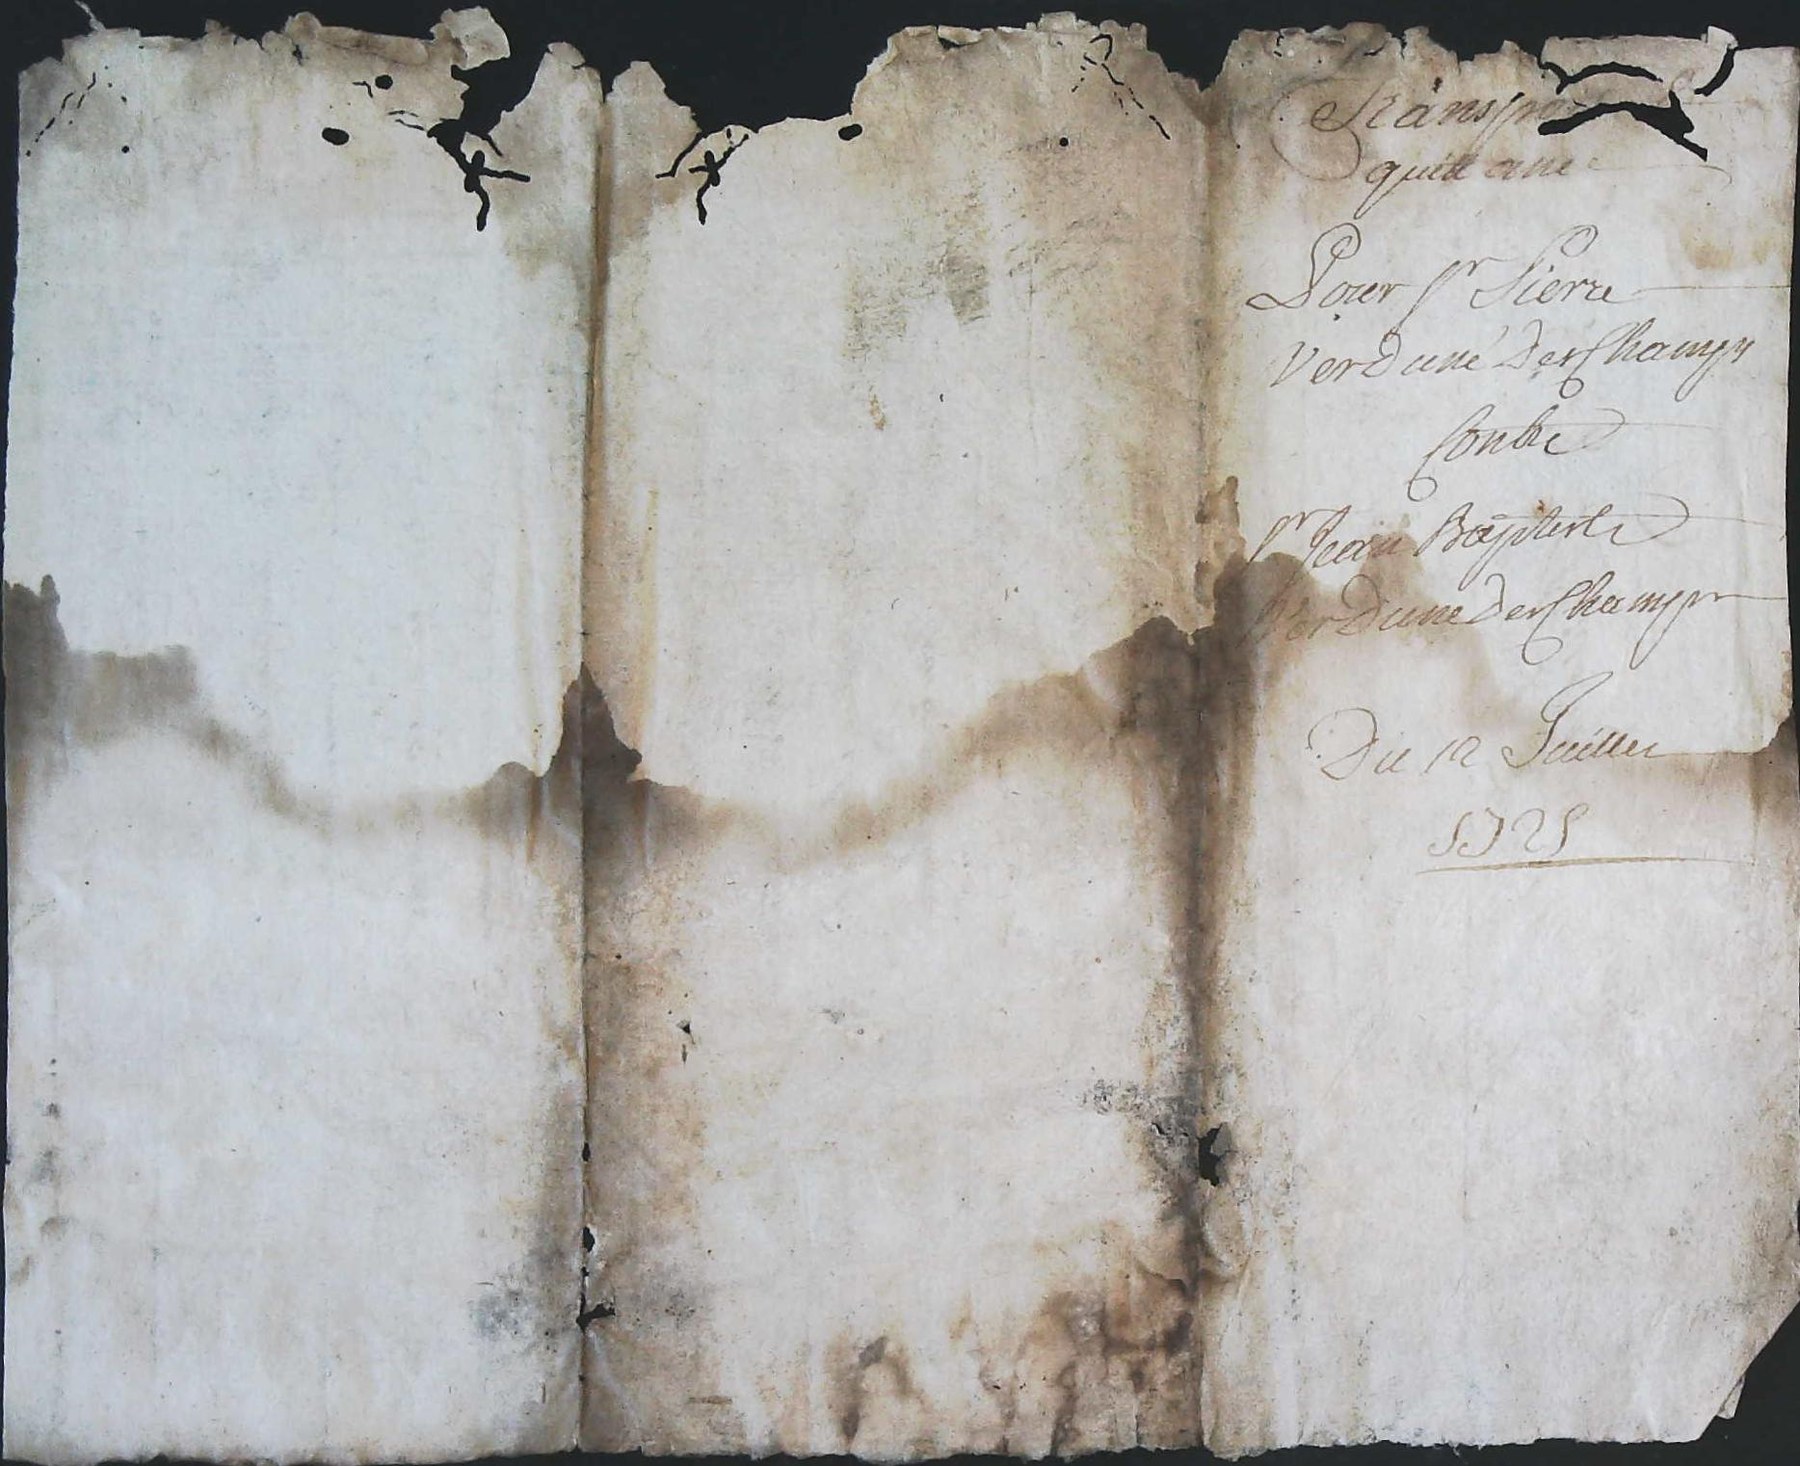 Transpo
quittance
Pour sr Pierre
Verduné Des Champs
Contre
sr Jean Baptiste
Verduné Des Champs
Du 12 Juillet
1725